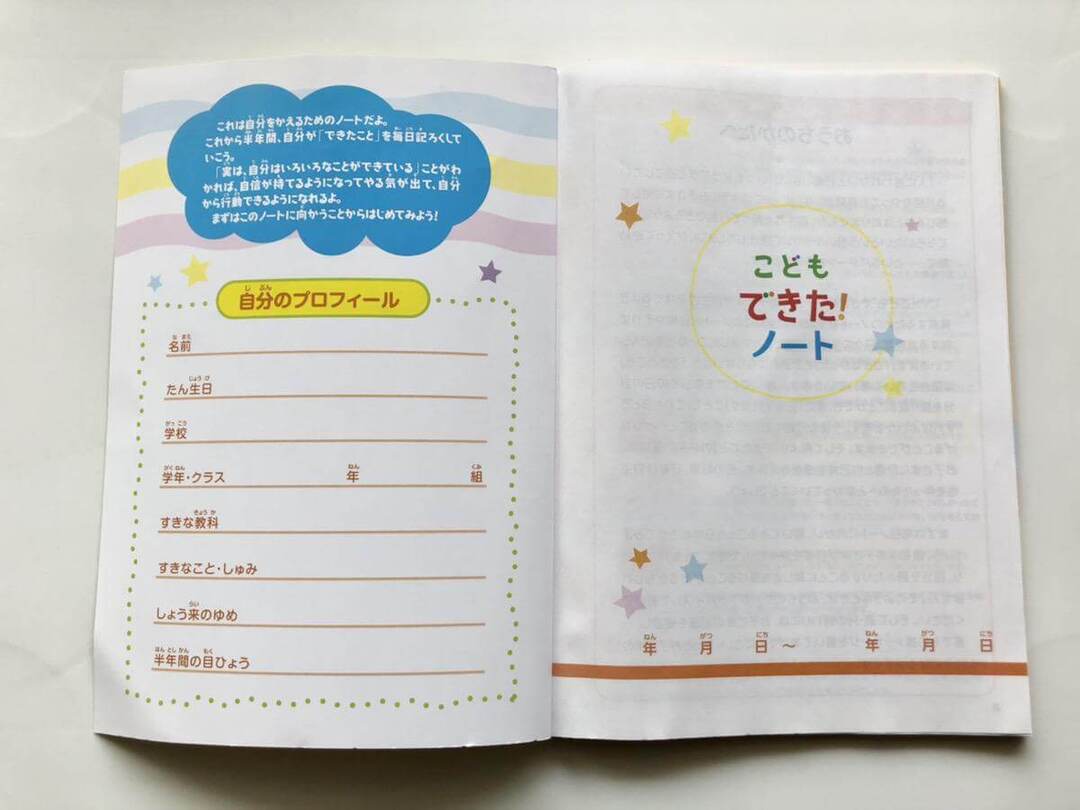 これは自分をかえるためのノートだよ。
これから半年間、自分が「できたこと」を毎日記ろくして
いこう。
「実は、自分はいろいろなことができている」ことがわ
かれば、自信が持てるようになってやる気が出て、自分
から行動できるようになれるよ。
まずはこのノートに向かうことからはじめてみよう!
自分のプロフィール
名前
たん生日
学校
学年・クラス 年 組
すきな教科
すきなこと・しゅみ
しょう来のゆめ
半年間の目ひょう
こども
できた!
ノート
年 月 日 ～ 年 月 日